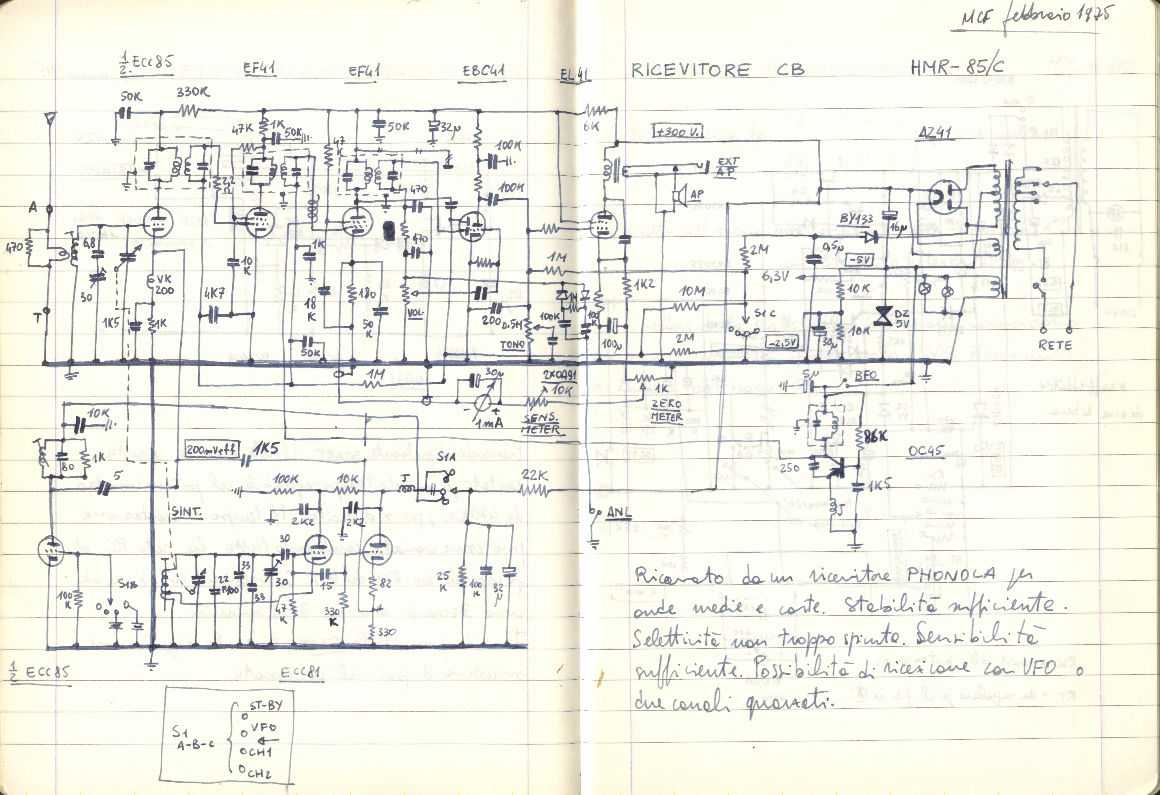 MCF febbraio 1975
RICEVITORE CB HMR-85/C
½ ECC85
EF41
EF41
EBC41
EL41
AZ41
50K
330K
47K
1K
50K
47K
50K
32µ
100K
100K
6K
+300 V.
EXT AP
AP
A
T
470
6,8
30
1K5
6VK 200
1K
10K
4K7
1K
18K
50K
180
50K
470
470
VOL.
200
0,5M
TONO
1M
1M
100K
100K
100µ
1K2
2M
10M
2M
S1C
6,3V
-2,5V
BY133
0,5µ
-5V
16µ
10K
10K
30µ
DZ 5V
RETE
1M
30µ
1mA
2XOA91
10K
SENS. METER
1K
ZERO METER
5µ
BFO
86K
250
OC45
1K5
J
10K
80
1K
5
200mVeff
1K5
SINT.
100K
10K
2K2
2K2
J
S1A
22K
ANL
100K
S1B
22
100
33
33
30
30
15
47K
330K
82
330
25K
100K
32µ
½ ECC85
ECC81
S1
A-B-C
ST-BY
VFO
CH1
CH2
Ricavato da un ricevitore PHONOLA per
onde medie e corte. Stabilità sufficiente.
Selettività non troppo spinta. Sensibilità
sufficiente. Possibilità di ricezione con VFO o
due canali quarzati.